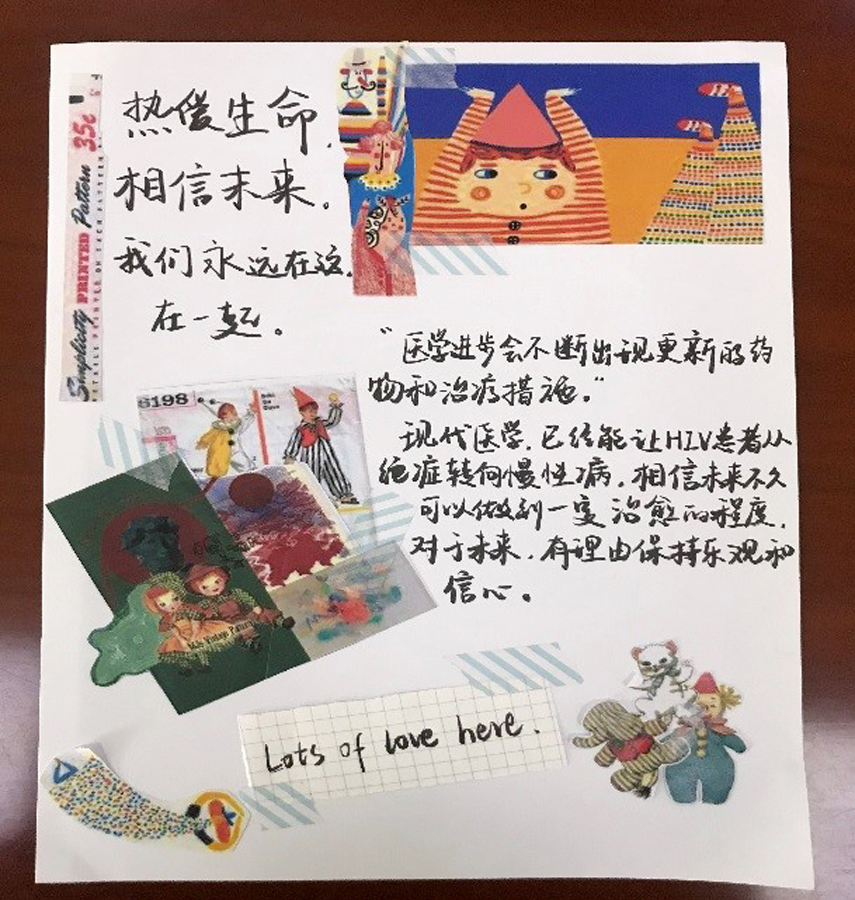 热爱生命,
相信未来。
我们永远在这,
在一起。
Simplicity PRINTED Pattern 35c
"医学进步会不断出现更新的药
物和治疗措施。"
现代医学,已经能让HIV患者从
绝症转向慢性病,相信未来不久
可以做到一定治愈的程度,
对于未来,有理由保持乐观和
信心。
6198
Lots of love here.